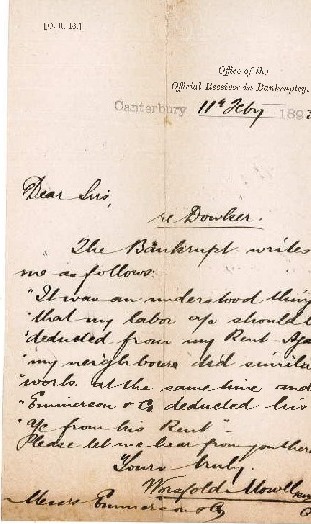 [O. R. 13.]
Office of the
Official Receiver in Bankruptcy,
Canterbury 11th Feby 189
Dear Sirs,
re Dowker.
The Bankrupt writes
me as follows:
"It was an understood thing
"that my labor a/c should
"deducted from my Rent
"my neighbour did similar
"work at the same time and
"Emmerson & Co deducted his
"a/c from his Rent"
Please let me hear from you
Yours truly
Worsfold Mowll
Messrs Emmerson & Co